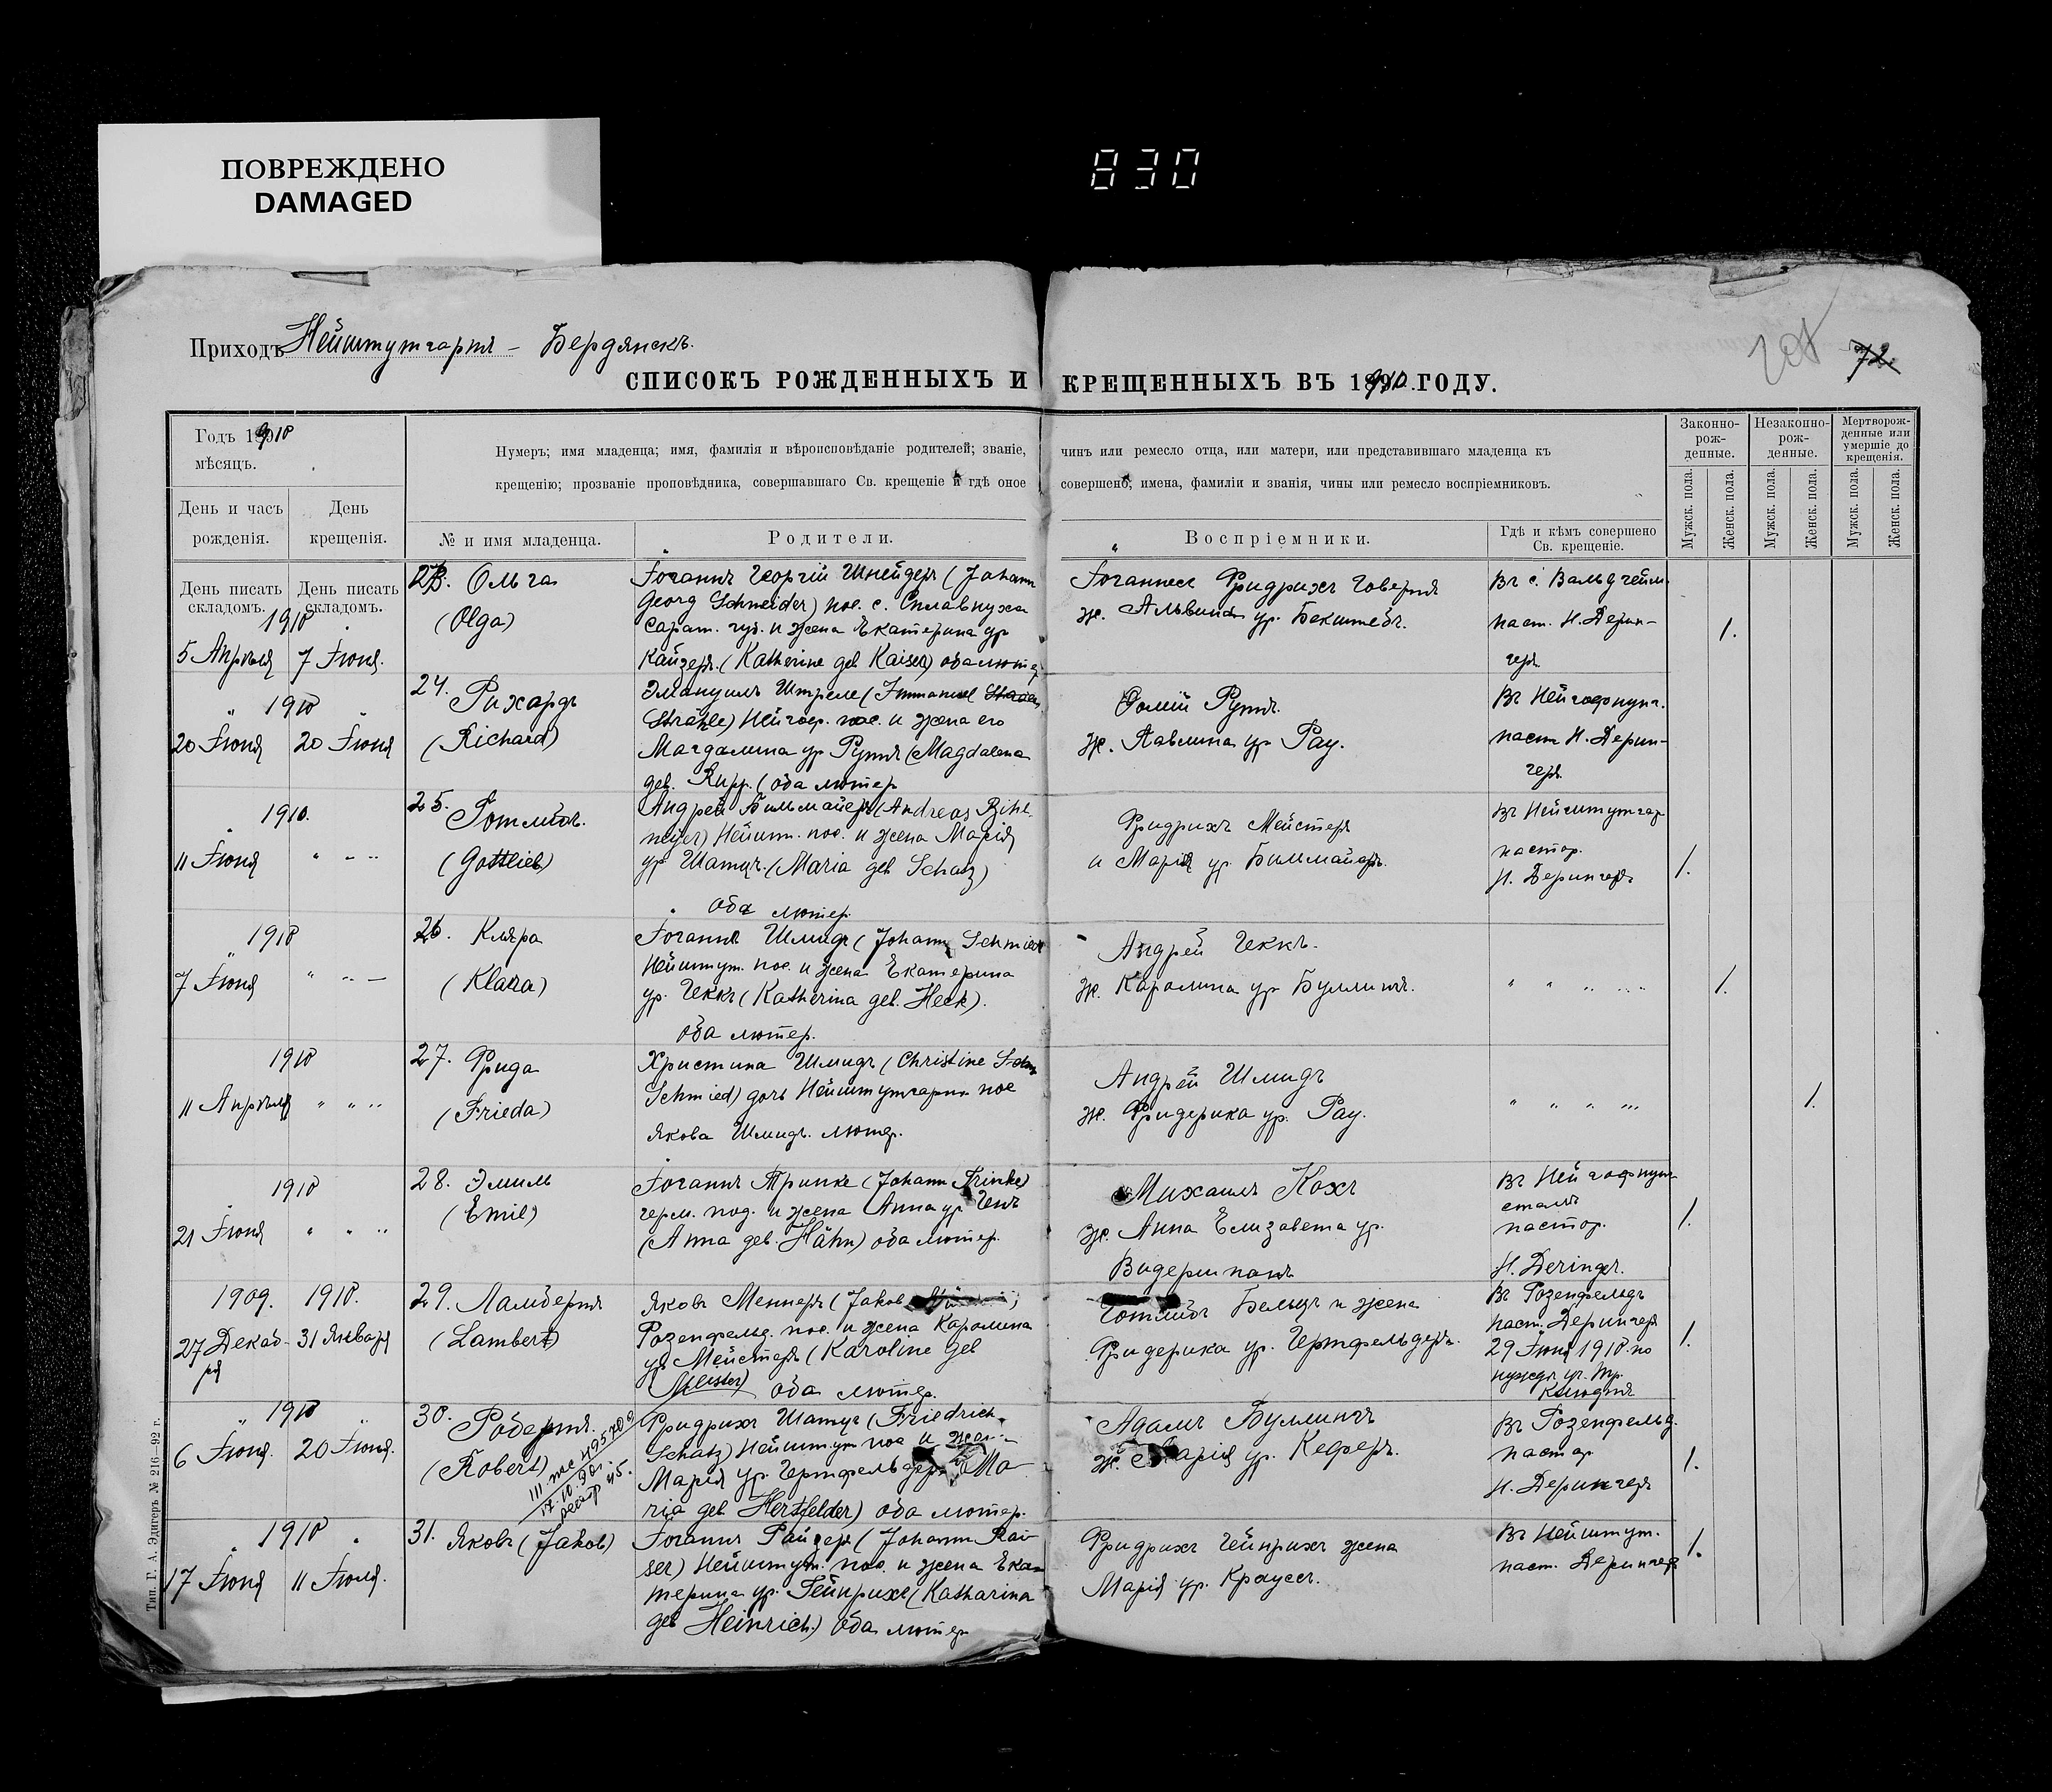 ПОВРЕЖДЕНО
DAMAGED
830
Приходъ Нейштутгартъ – Бердянскъ.
72.
СПИСОКЪ РОЖДЕННЫХЪ И КРЕЩЕННЫХЪ ВЪ 1910 ГОДУ.
Годъ 1910
мѣсяцъ.
Нумеръ; имя младенца; имя, фамилія и вѣроисповѣданіе родителей; званіе, чинъ или ремесло отца, или матери, или представившаго младенца къ
крещенію; прозваніе проповѣдника, совершавшаго Св. крещеніе и гдѣ оное совершено; имена, фамиліи и званія, чины или ремесло воспріемниковъ.
Законно-
рож-
денные.
Незаконно-
рож-
денные.
Мертворож-
денные или
умершіе до
крещенія.
Мужск. пола.
Женск. пола.
Мужск. пола.
Женск. пола.
Мужск. пола.
Женск. пола.
День и часъ
рожденія.
День
крещенія.
№ и имя младенца.
Родители.
Воспріемники.
Гдѣ и кѣмъ совершено
Св. крещеніе.
День писать
складомъ.
День писать
складомъ.
1910
5 Апрѣля 7 Іюня.
23. Ольга
(Olga)
Іоганнъ Георгій Шнейдеръ (Johann
Georg Schneider) пос. с. Сплавнуха
Сарат. губ. и жена Екатерина ур
Кайзеръ. (Katherine geb Kaiser) оба лютер
Іоганнесъ Фридрихъ Говертъ
ж. Альвина ур. Бекштетъ.
Въ с. Вальдгейм.
паст. Н. Дерин-
геръ
1.
1910
20 Іюня 20 Іюня
24. Рихардъ
(Richard)
Эмануилъ Штреле (Immanuel
Strähle) Нейгоф. пос. и жена его
Магдалина ур Руппъ (Magdalena
geb. Rupp. (оба лютер
Фомій Руппъ.
ж. Павлина ур Рау.
Въ Нейгофнунг.
паст Н. Дерин-
геръ
1910.
11 Іюня " " "
25. Готлибъ.
(Gottlieb)
Андрей Бильмайеръ (Andreas Bihl-
meyer) Нейшт. пос. и жена Марія
ур Шатцъ. (Maria geb Schatz)
оба лютер.
Фридрихъ Мейстеръ
и Марія ур. Билмайеръ.
Въ Нейштутгар
пастор.
Н. Дерингеръ
1.
1910
7 Іюня " " –
26. Клара
(Klara)
Іоганнъ Шмидъ (Johann Schmied
Нейштут. пос. и жена Екатерина
ур. Геккъ (Katherina geb. Heck).
оба лютер.
Андрей Геккъ.
ж. Каролина ур Буллингъ.
" " " "
1.
1910
11 Апрѣля " " "
27. Фрида
(Frieda)
Христина Шмидъ (Christine
Schmied) дочь Нейштутгартъ пос
Якова Шмидъ. лютер.
Андрей Шмидъ
ж. Фридерика ур. Рау.
" " " "
1.
1910
21 Іюня " " "
28. Эмиль
(Emil)
Іоганнъ Тринке (Johann Trinke)
герм. под. и жена Анна ур Генъ
(Anna geb. Hähn) оба лютер.
Михаилъ Кохъ
ж. Анна Елизавета ур.
Видершпанъ
Въ Нейгофнунг
сталь
пастор.
H. Deringer.
1.
1909. 1910.
27 Декаб- 31 Января
ря
29. Ламбертъ
(Lambert)
Яковъ Меннеръ (Jakob
Розенфельд. пос. и жена Каролина
ур Мейстеръ (Karoline geb
Meister) оба лютер.
Готлибъ Бельцъ и жена
Фридерика ур. Гертфельдеръ.
Въ Розенфельдъ
паст. Дерингеръ
29 Іюня 1910. по
нуждѣ
1.
1910
6 Іюня. 20 Іюня.
30. Робертъ.
(Robert)
Фридрихъ Шатцъ (Friedrich
Schatz) Нейштут пос и жена
Марія ур. Гертфельдеръ (Ma-
ria geb Hertfelder) оба лютер.
Адамъ Буллингъ
ж. Марія ур. Кеферъ.
Въ Розенфельд.
пастор
Н. Дерингеръ
1.
1910
17 Іюня 11 Іюля.
31. Яковъ (Jakob)
Іоганнъ Райзеръ (Johann Rai-
ser) Нейштут. пос. и жена Ека-
терина ур. Гейнрихъ (Katharina
geb Heinrich) оба лютер
Фридрихъ Гейнрихъ жена
Марія ур. Крауссъ.
Въ Нейштут.
паст. Дерингеръ
1.
Тип. Г. А. Эдигеръ № 216—92 г.